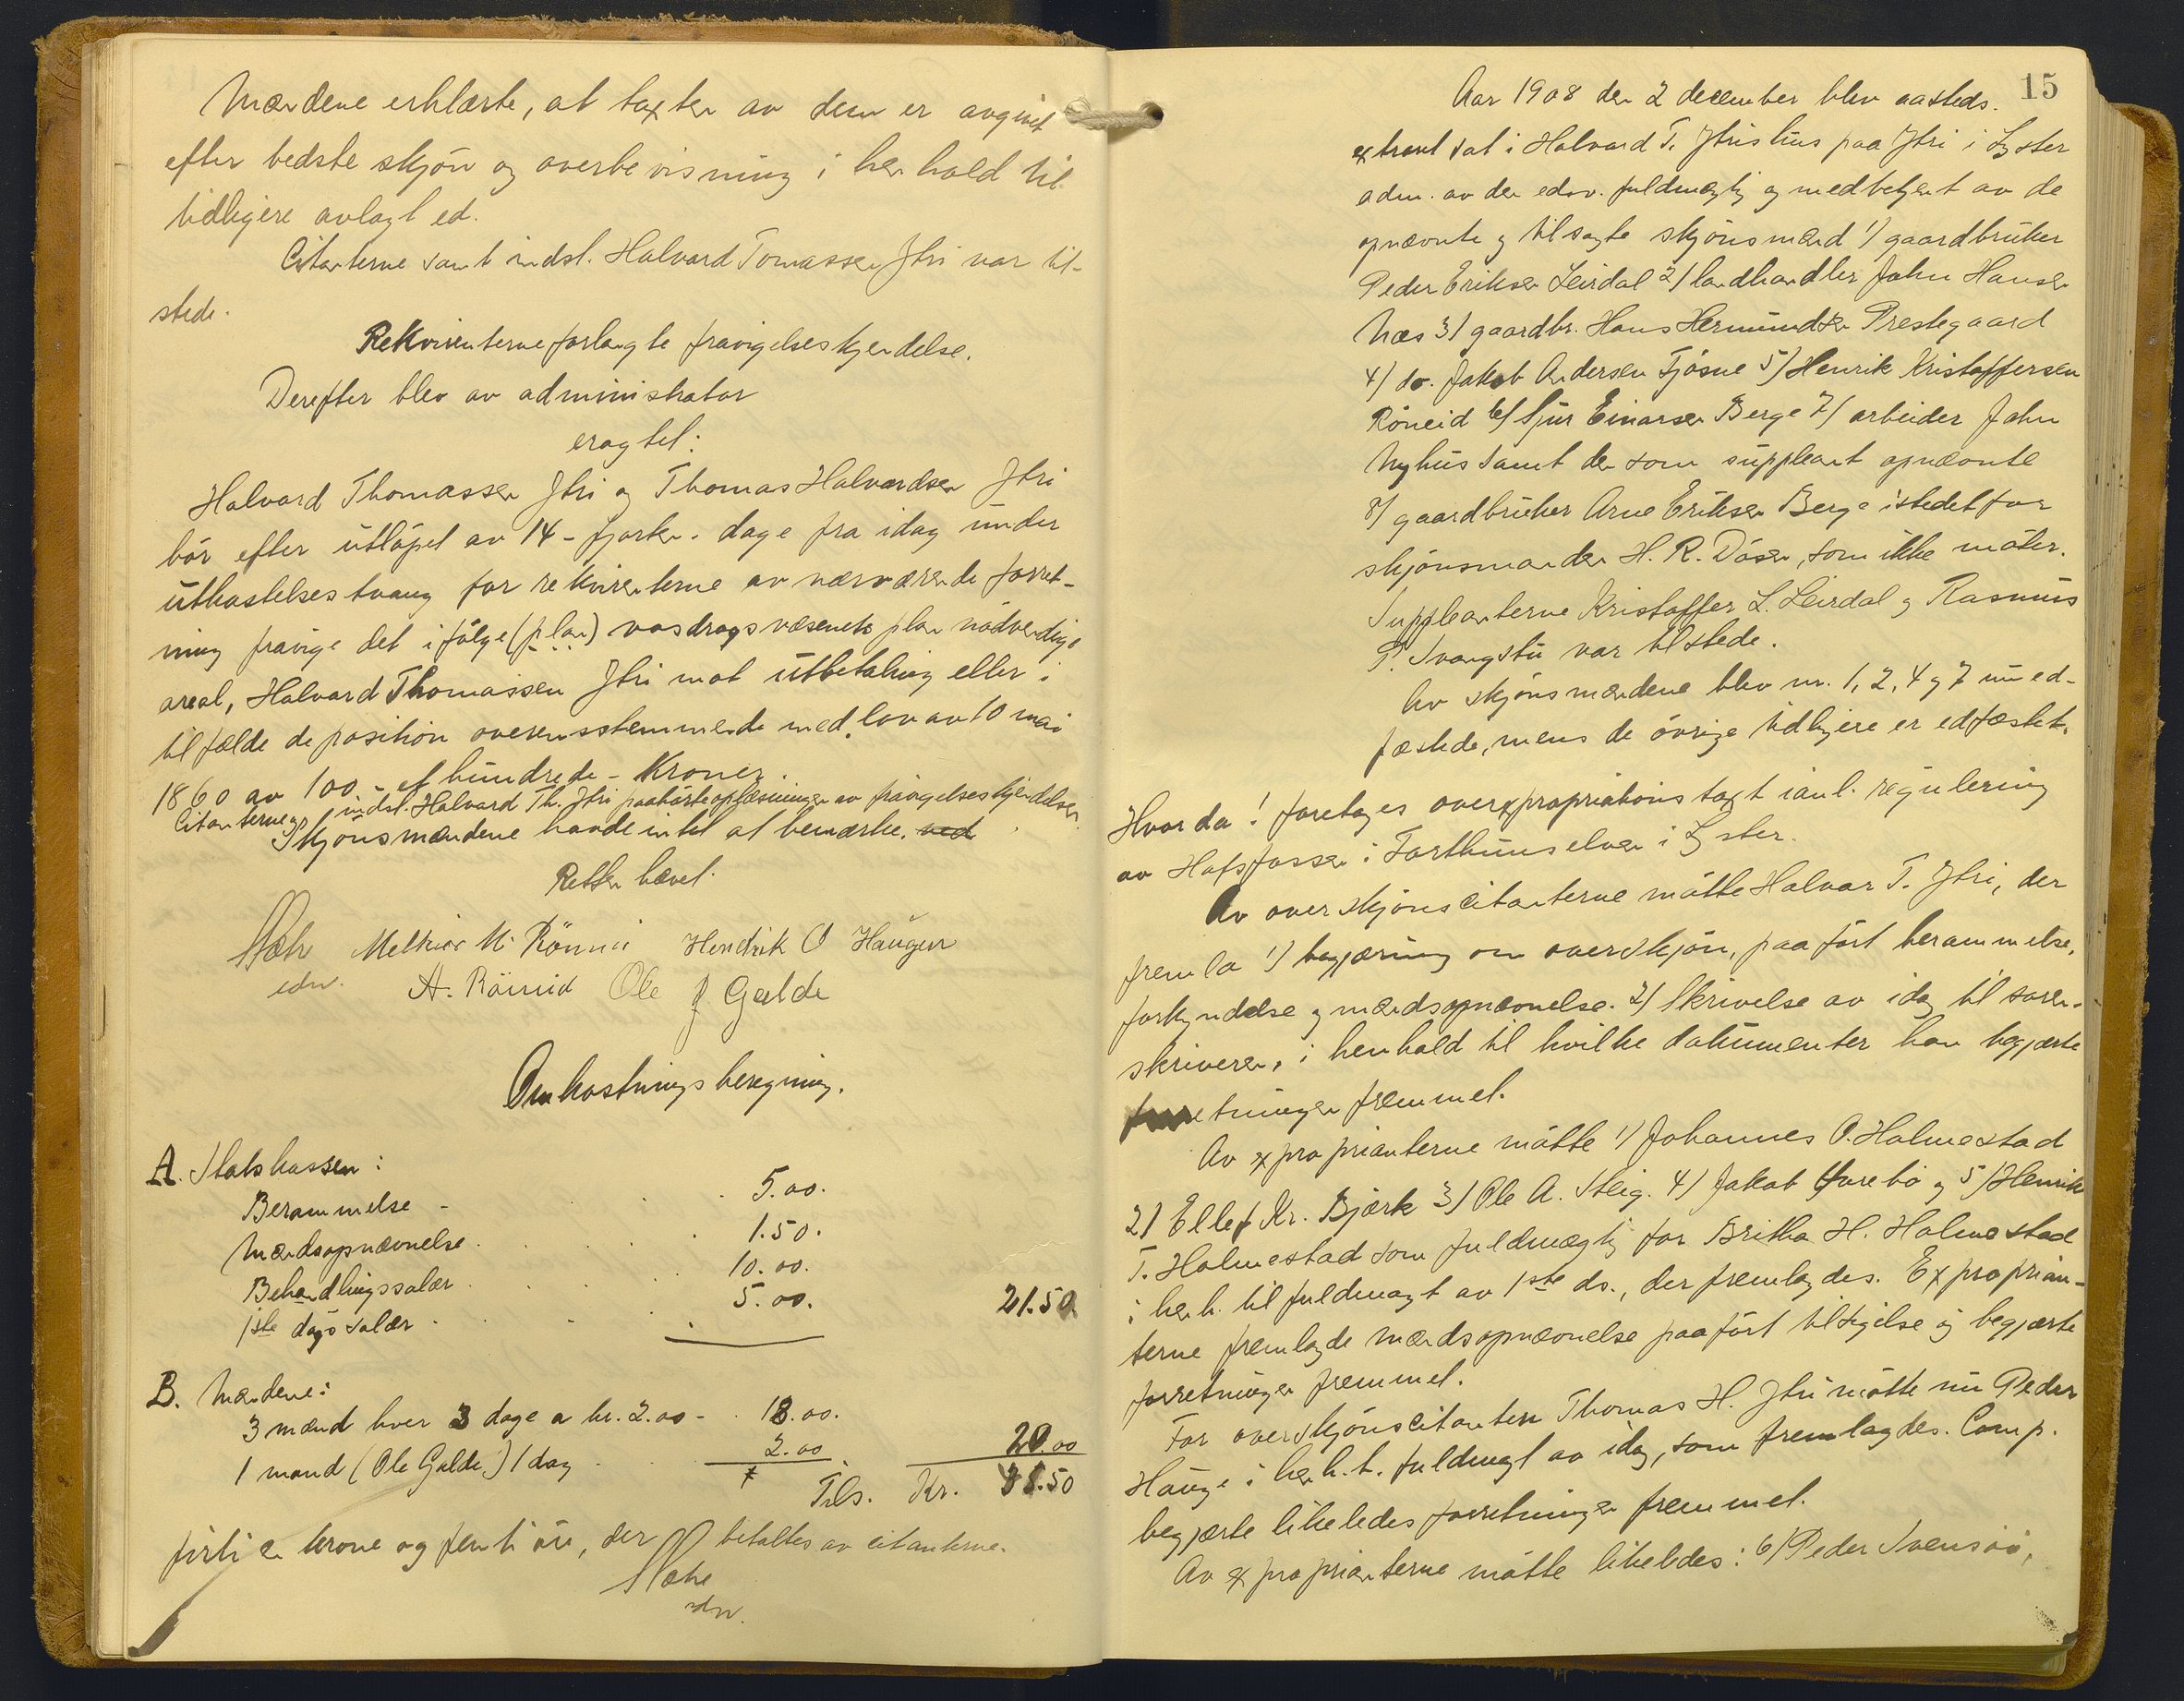 Mændene erklærte, at taxten av dem er avgivet
efter bedste skjøn og overbevisning i henhold til
tidligere avlagt ed.
Citanterne samt indst. Halvard Tomassen Jtri var til-
stede.
Rekvirenterne forlangte fravigelseskjendelse.
Derefter blev av administrator
eragtet:
Halvard Thomassen Jtri og Thomas Halvardsen Jtri
bör efter utlöpet av 14 - fjorten - dage fra idag under
utkastelsestvang for rekvirenterne av nærværende forret-
ning fravige det i fölge (plan) vasdragsvæsenets plan nödvendige
areal, Halvard Thomassen Jtri mot utbetaling eller i
tilfælde deposition overensstemmende med lov av 10 mai
1860 av 100 - et hundrede - Kroner.
Citanterne og indst. Halvard Th. Jtri paahörte oplæsningen av fravigelseskjendelsen.
Skjönsmændene havde intet at bemærke. ved
Retten hævet.
Melkior M. Rönnei Hendrik O Haugen
edsv. A. Röneid Ole J Gjelde
Omkostningsberegning.
A. Statskassen:
Berammelse - 5.00.
Mændsopnævnelse 1.50.
Behandlingssalær 10.00.
1ste dags salær 5.00. 21.50
B. Mændene:
3 mænd hver 3 dage a kr. 2.00 - 18.00.
1 mand (Ole Gjelde) 1 dag 2.00 20.00
Tils. Kr. 41.50
firti en krone og femti öre, der betaltes av citanterne.
edsv.
15
Aar 1908 den 2 december blev aasteds.
extraret sat i Halvard T. Jtris hus paa Jtri i Lyster
adm. av den edsv. fuldmægtig og medbetjent av de
opnævnte og tilsagte skjönsmænd 1/ gaardbruker
Peder Eriksen Leirdal 2/ landhandler John Hansen
Næs 3/ gaardbr. Hans Hermundsen Prestegaard
4/ do. Jakob Andersen Fjösne 5/ Henrik Kristoffersen
Röneid 6/ Sjur Einarsen Berge 7/ arbeider John
Nyhus samt den som suppleant opnævnte
8/ gaardbruker Arne Eriksen Berge istedetfor
skjönsmanden H. R. Dösen, som ikke möter.
Suppleanterne Kristoffer L. Leirdal og Rasmus
P. Svangstu var tilstede.
Av skjönsmændene blev nr. 1, 2, 4 og 7 nu ed-
fæstede, mens de övrige tidligere er edfæstet.
Hvorda! foretages overexpropriationstaxt i anl. regulering
av Hafsfossen i Forthunselven i Lyster.
Av overskjönscitanterne mötte Halvar T. Jtri, der
fremla 1/ begjæring om overskjön, paafört berammelse,
forkyndelse og mændsopnævnelse. 2/ Skrivelse av idag til soren-
skriveren, i henhold til hvilke dokumenter han begjærte
forretningen fremmet.
Av exproprianterne mötte 1/ Johannes O. Holmestad
2/ Ellef Kr. Bjørk 3/ Ole A. Steig. 4/ Jakob Yurebö og 5/ Henrik
T. Holmestad som fuldmægtig for Britha H. Holmestad
i henh. til fuldmagt av 1ste ds., der fremlagdes. Exproprian-
terne fremlagde mændsopnævnelse paafört tilsigelse og begjærte
forretningen fremmet.
For overskjönscitanten Thomas H. Jtri mötte nu Peder
Hauge i henh. t. fuldmagt av idag, som fremlagdes. Comp.
begjærte likeledes forretningen fremmet.
Av exproprianterne mötte likeledes: 6/ Peder Svensöi,